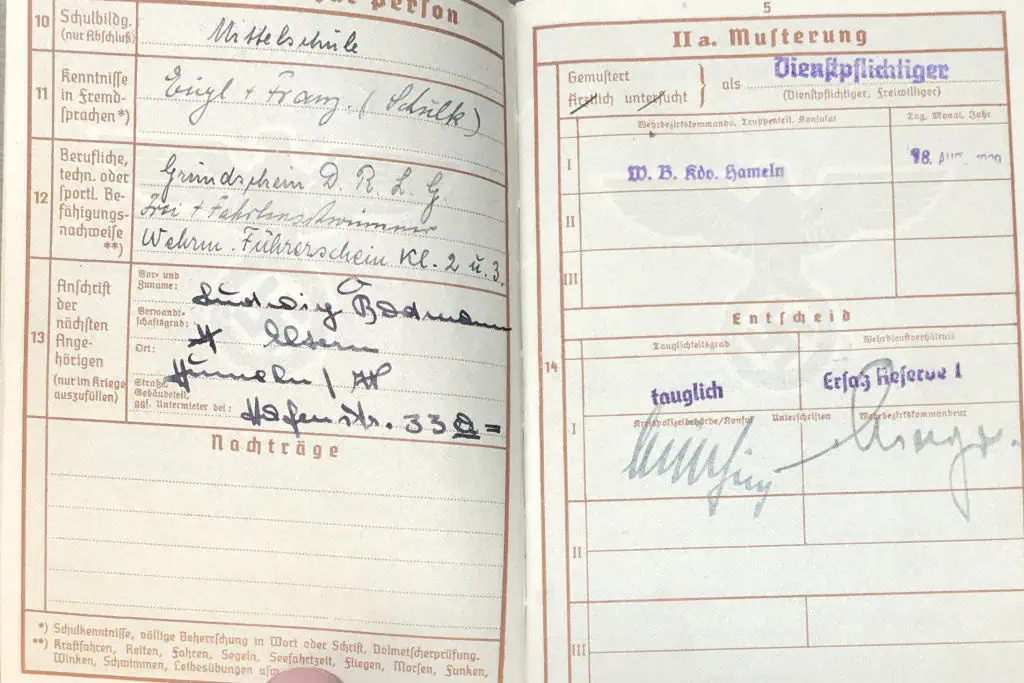 zur Person
10 Schulbildg.
(nur Abschluß)
Mittelschule
11 Kenntnisse
in Fremd-
sprachen*)
Engl + Franz. (Schulk)
12 Berufliche,
techn. oder
sportl. Be-
fähigungs-
nachweise
**)
Grundschein D. R. L. G
Frei + Fahrtenschwimmer
Wehrm. Führerschein Kl. 2 u. 3.
13 Anschrift
der
nächsten
Ange-
hörigen
(nur im Kriege
auszufüllen)
Vor- und
Zuname:
Ludwig Badmann
Verwandt-
schaftsgrad:
Eltern
Ort:
Hameln /
Straße,
Gebäudeteil,
ggf. Untermieter bei:
Hafenstr. 33
Nachträge
*) Schulkenntnisse, völlige Beherrschung in Wort oder Schrift, Dolmetscherprüfung.
**) Kraftfahren, Reiten, Fahren, Segeln, Seefahrtzeit, Fliegen, Morsen, Funken,
Winken, Schwimmen, Leibesübungen usw.
5
II a. Musterung
Gemustert
Ärztlich untersucht
als
Dienstpflichtiger
(Dienstpflichtiger, Freiwilliger)
Wehrbezirkskommando, Truppenteil, Konsulat
Tag, Monat, Jahr
I
W. B. Kdo. Hameln
II
III
Entscheid
14
Tauglichkeitsgrad
Wehrdienstverhältnis
tauglich
Ersatz Reserve I
I
Kreispolizeibehörde/Konsul
Unterschriften
Wehrbezirkskommandeur
II
III